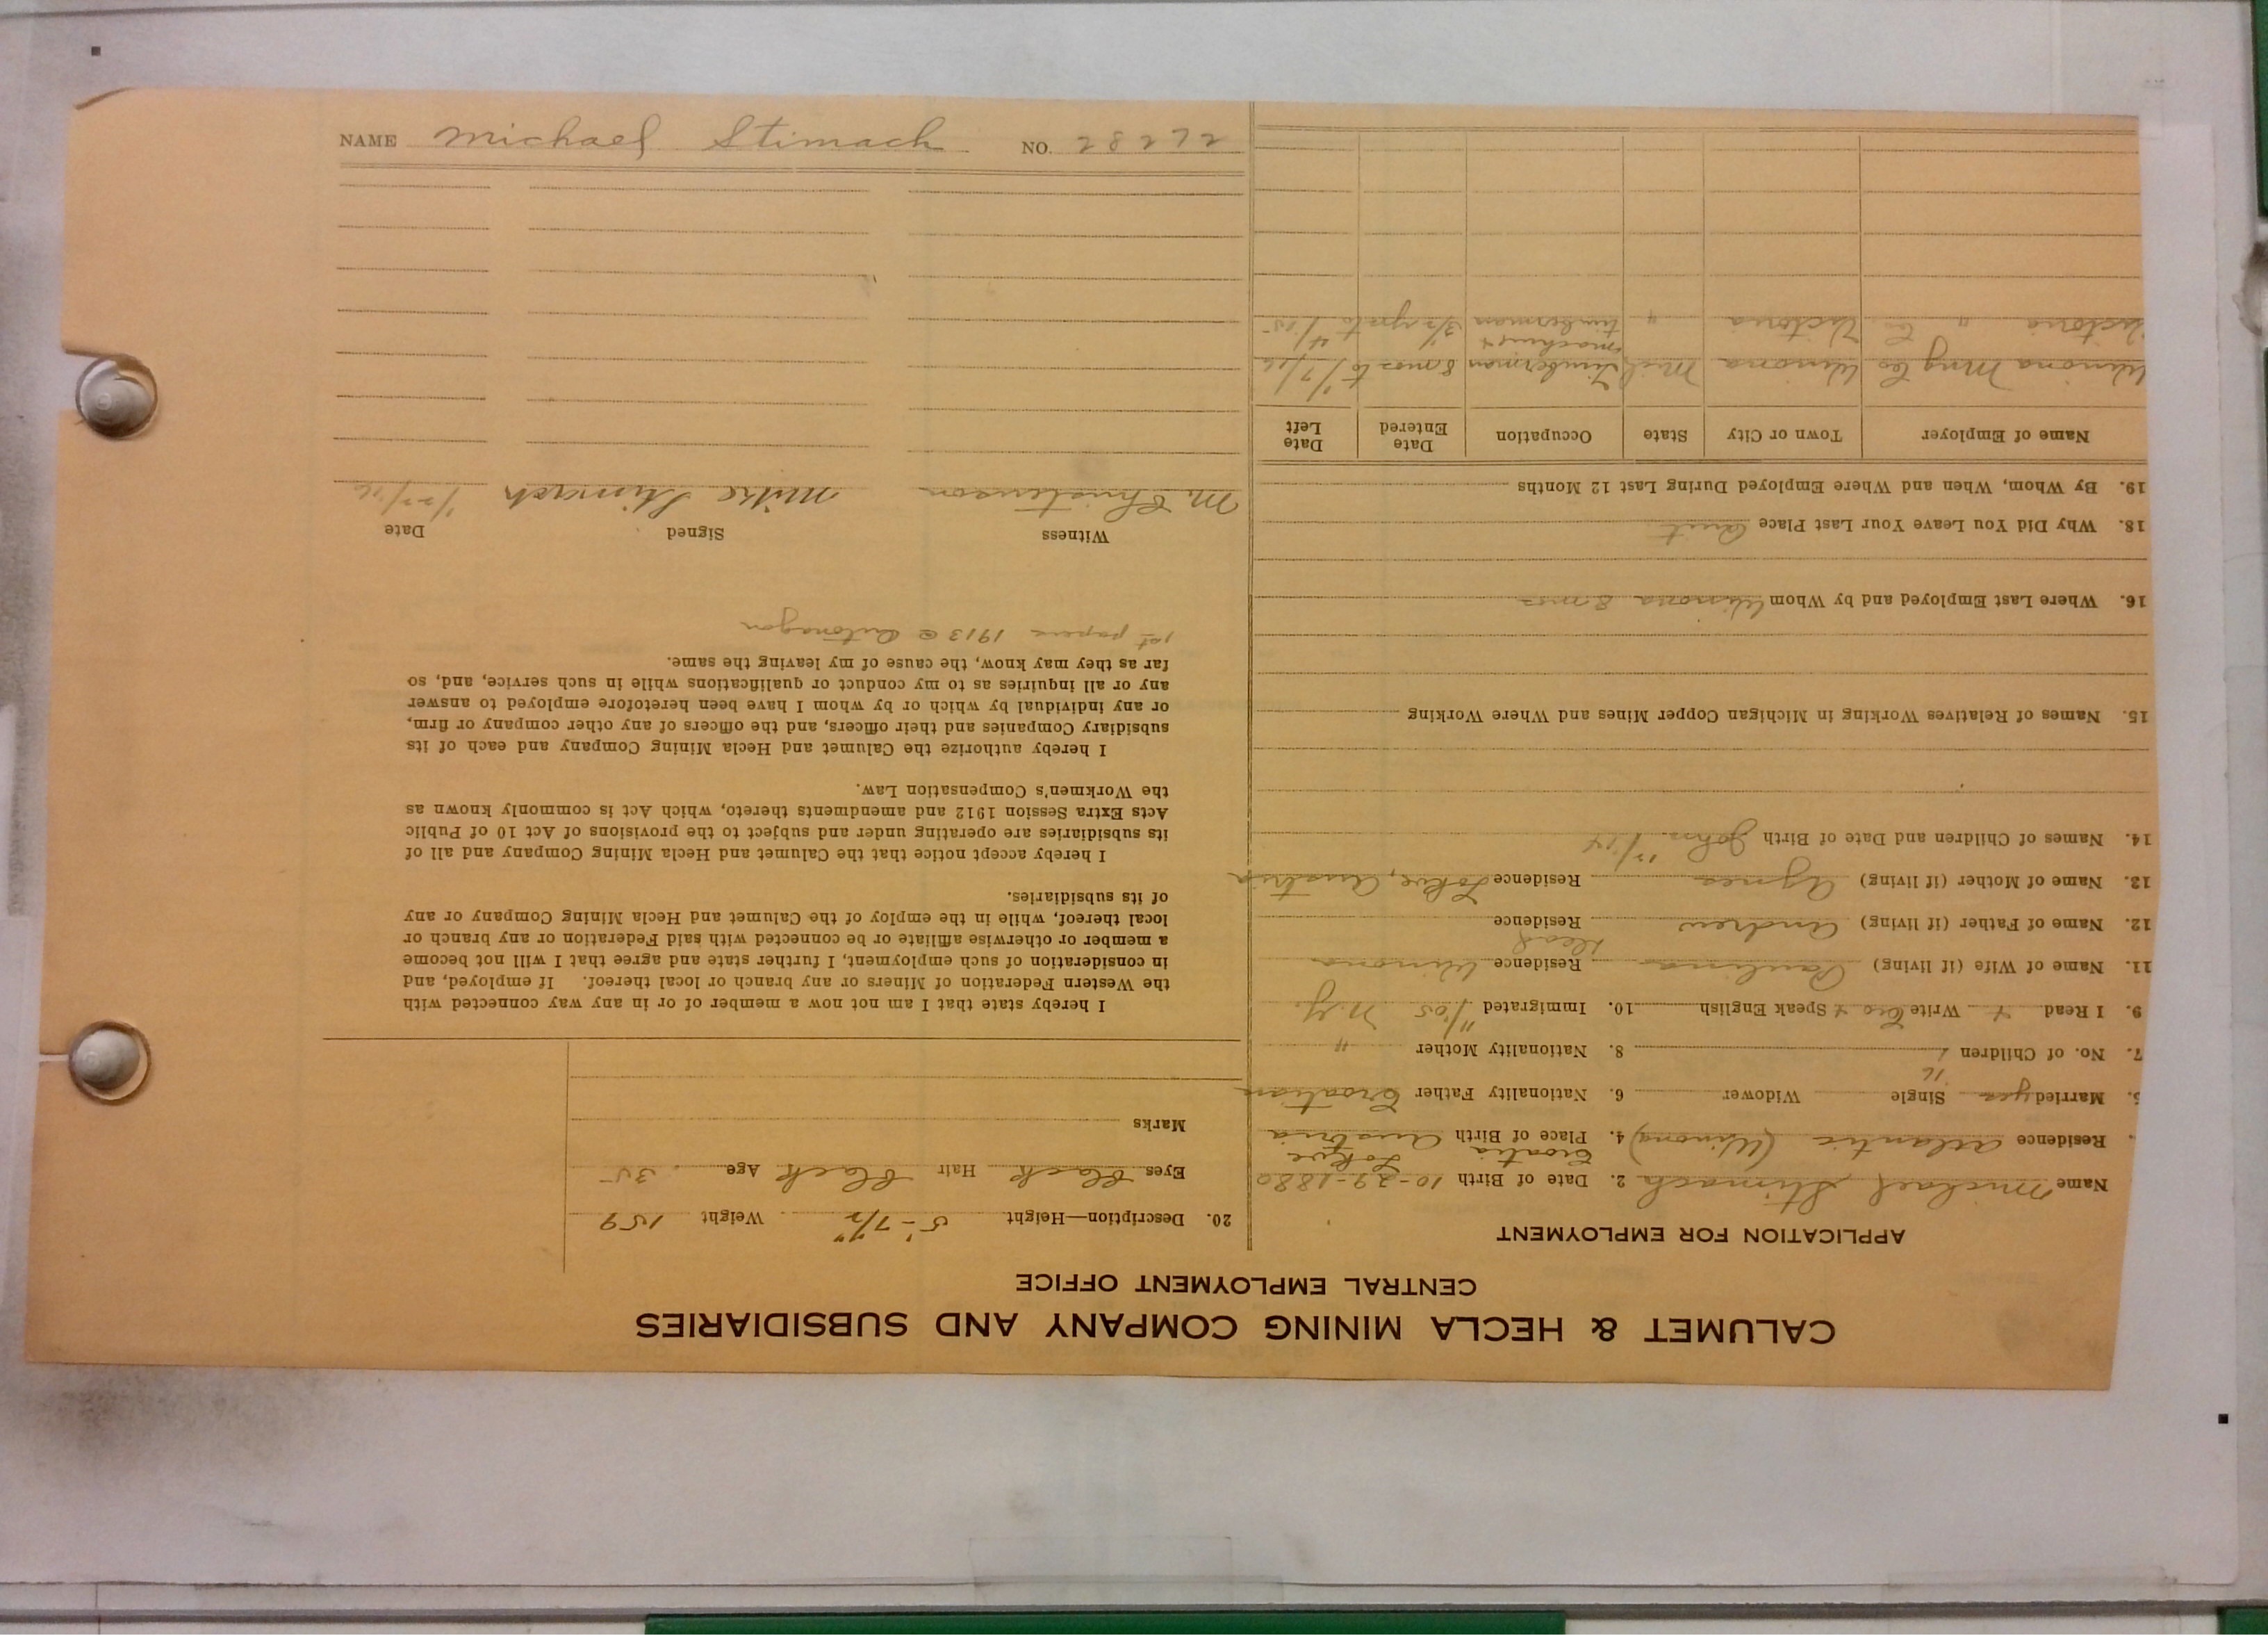 CALUMET & HECLA MINING COMPANY AND SUBSIDIARIES
CENTRAL EMPLOYMENT OFFICE
APPLICATION FOR EMPLOYMENT
Name Michael Stimach 2. Date of Birth 10-29-1880
Croatia Lokve
Residence Atlantic (Winona) 4. Place of Birth Austria
5. Married yes Single Widower 6. Nationality Father Croatian
7. No. of Children 1 8. Nationality Mother "
9. I Read + Write Cro + Speak English 10. Immigrated 11/05 N.Y.
11. Name of Wife (if living) Paulina Residence Winona
12. Name of Father (if living) Andrew Residence Dead
13. Name of Mother (if living) Agnes Residence Lokve, Austria
14. Names of Children and Date of Birth John 12/14
15. Names of Relatives Working in Michigan Copper Mines and Where Working
16. Where Last Employed and by Whom Winona 8 mos
18. Why Did You Leave Your Last Place Quit
19. By Whom, When and Where Employed During Last 12 Months
Name of Employer Town or City State Occupation Date Entered Date Left
Winona Mng Co Winona Mich Timberman 8 mos to 1/7/16
Victoria " Co Victoria " machine + timberman 3 1/2 yrs to 4/15
20. Description—Height 5'-7 1/2" Weight 159
Eyes black Hair black Age 35
Marks
I hereby state that I am not now a member of or in any way connected with
the Western Federation of Miners or any branch or local thereof. If employed, and
in consideration of such employment, I further state and agree that I will not become
a member or otherwise affiliate or be connected with said Federation or any branch or
local thereof, while in the employ of the Calumet and Hecla Mining Company or any
of its subsidiaries.
I hereby accept notice that the Calumet and Hecla Mining Company and all of
its subsidiaries are operating under and subject to the provisions of Act 10 of Public
Acts Extra Session 1912 and amendments thereto, which Act is commonly known as
the Workmen's Compensation Law.
I hereby authorize the Calumet and Hecla Mining Company and each of its
subsidiary Companies and their officers, and the officers of any other company or firm,
or any individual by which or by whom I have been heretofore employed to answer
any or all inquiries as to my conduct or qualifications while in such service, and, so
far as they may know, the cause of my leaving the same.
1st papers 1913 @ Ontonagon
Witness Signed Date
M. Christenson Mike Stimach
NAME Michael Stimach NO. 28272